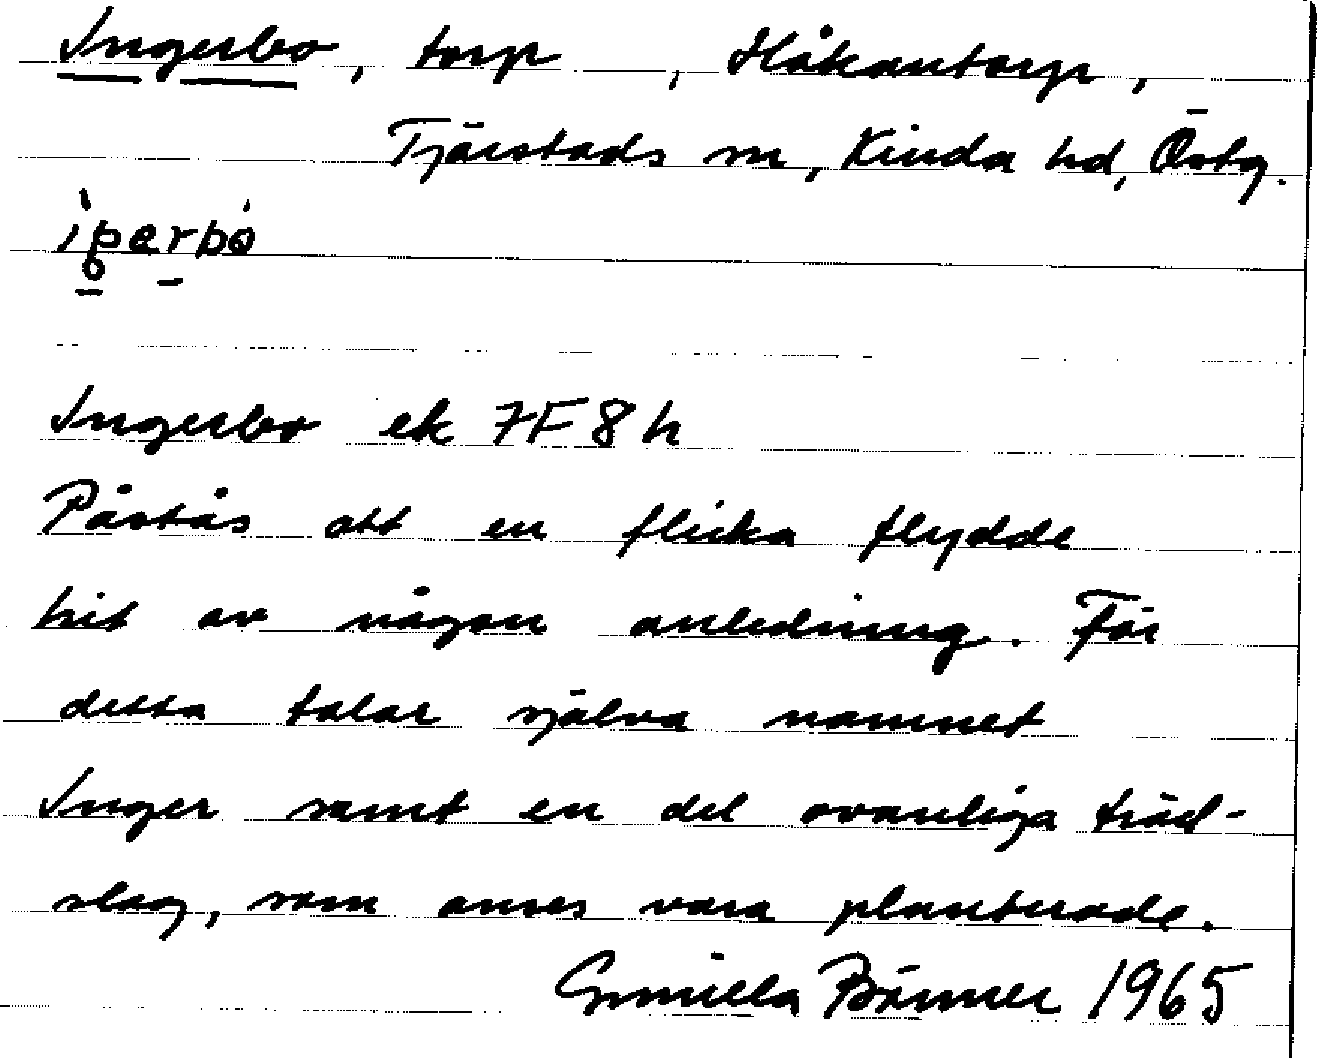 Ingerbo, torp, Håkantorp,
Tjärstads sn, Kinda hd, Östg.
Ingerbo ek 7F8h
Påstås att en flicka flydde
hit av någon anledning. För
detta talar själva namnet
Inger samt en del ovanliga träd-
slag, som anses vara planterade.
Gunilla 1965